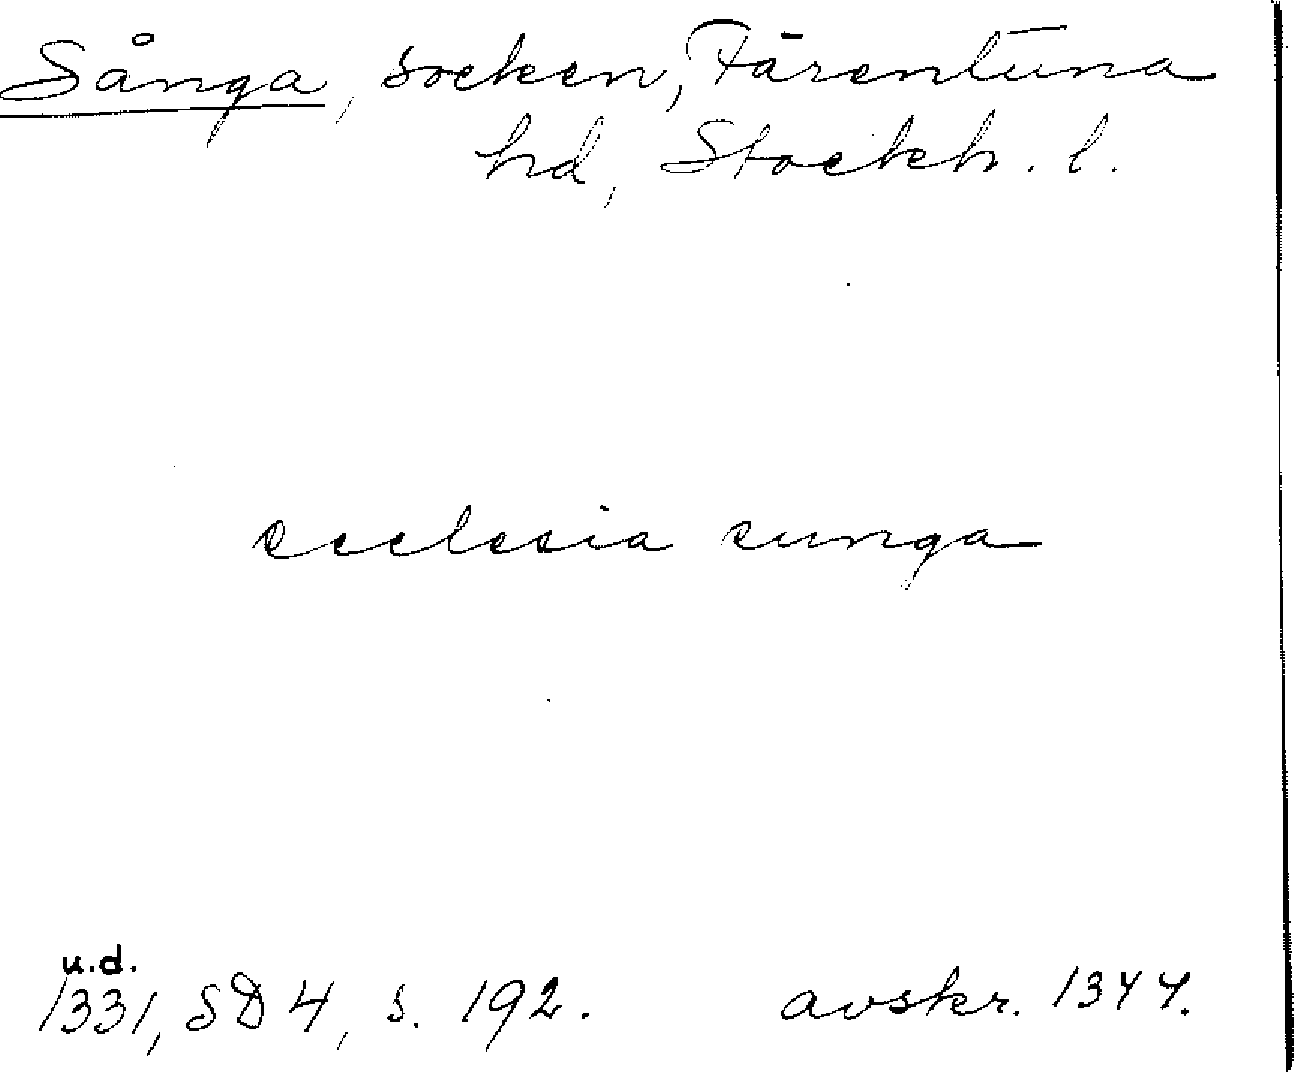 Sånga, socken, Färentuna
hd, Stockh. l.
ecclesia sunga
u.d.
1331, SD 4, s. 192. avskr. 1344.